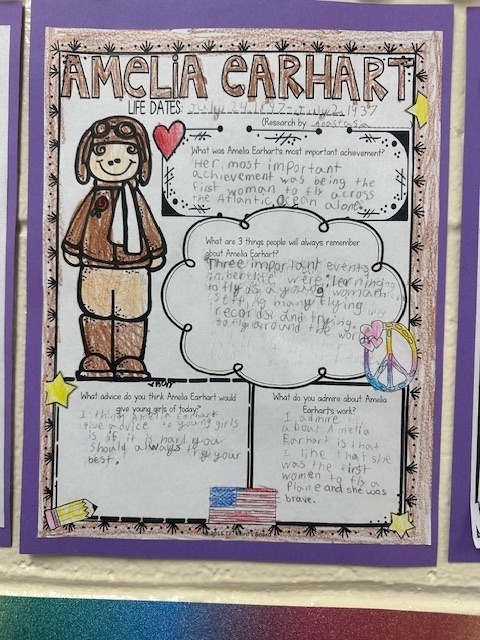 AMELIA EARHART
LIFE DATES: July 24, 1897- July 2, 1937
(Research by:
What was Amelia Earhart's most important achievement?
Her most important
achievement was being the
first woman to fly across
the Atlantic Ocean alone.
What are 3 things people will always remember
about Amelia Earhart?
Three important events
in her life were learning
to fly as a young woman,
setting many flying
records, and trying
to fly around the
What advice do you think Amelia Earhart would
give young girls of today?
I think Amelia Earhart
give advice to young girls
is if it is hard you
should always try your
best.
What do you admire about Amelia
Earhart's work?
I admire
about Amelia
Earhart is that
I like that she
was the first
women to fly a
Plane and she was
brave.